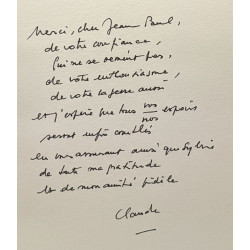 Merci, cher Jean Paul,
de votre confiance,
qui ne se dément pas,
de votre enthousiasme,
de votre sagesse aussi
et j'espère que tous vos espoirs
nos
seront enfin comblés
en vous assurant ainsi que Sylvie
de toute ma gratitude
et de mon amitié fidèle
Claude